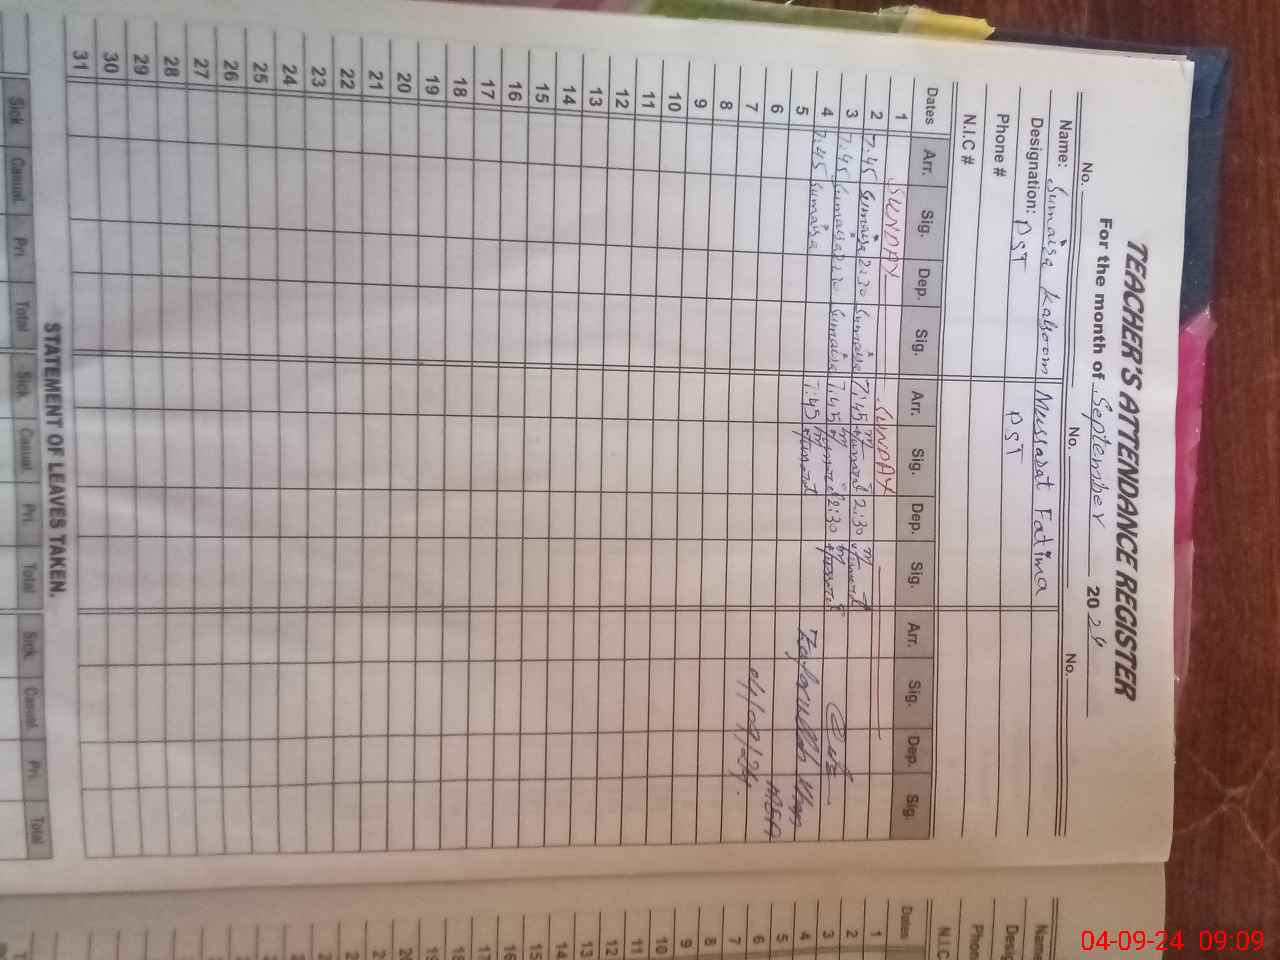 TEACHER'S ATTENDANCE REGISTER
For the month of September 2024
No. No. No.
Name: Sumaisa Kalsoom Mussarat Fatima
Designation: PST PST
Phone #
N.I.C #
Dates Arr. Sig. Dep. Sig. Arr. Sig. Dep. Sig. Arr. Sig. Dep. Sig.
1 SUNDAY SUNDAY
2 7:45 Sumaisa 2:30 Sumaisa 7:45 2:30
3 7:45 Sumaisa 2:30 Sumaisa 7:45 2:30
4 7:45 Sumaisa 7:45
5
6
7 04/09/24.
8
9
10
11
12
13
14
15
16
17
18
19
20
21
22
23
24
25
26
27
28
29
30
31
STATEMENT OF LEAVES TAKEN.
Sick Casual Pri. Total Sick Casual Pri. Total Sick Casual Pri. Total
Dates
1
2
3
4
5
6
7
8
9
10
11
12
13
14
15
16
17
04-09-24 09:09